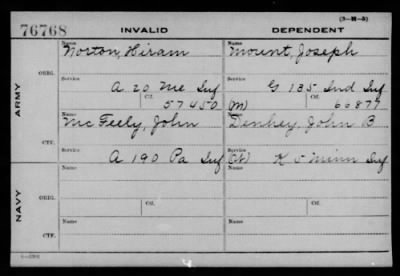 (3-M-5)
76768 INVALID DEPENDENT
Name Name
Norton, Hiram Mount, Joseph
ORIG. Service Service
A 20 Me Inf G 135 Ind Inf
Ctf. 57450 (M) Ctf. 66877
ARMY
Name Name
McFeely, John Denhey, John B
CTF. Service Service
A 190 Pa Inf K 5 Minn Inf
Name Name
ORIG. Service Ctf. Service Ctf.
NAVY
Name Name
CTF. Service Service
4